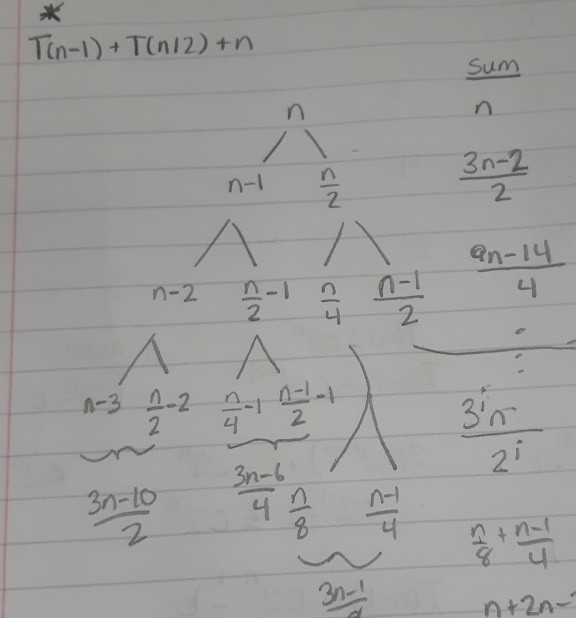 *
T(n-1) + T(n/2) + n
sum
n n
n-1 n/2 (3n-2)/2
n-2 n/2-1 n/4 (n-1)/2 (9n-14)/4
n-3 n/2-2 n/4-1 (n-1)/2-1 3^i n-/2^i
(3n-10)/2 (3n-6)/4 n/8 (n-1)/4 n/8 + (n-1)/4
3n-1 n+2n-